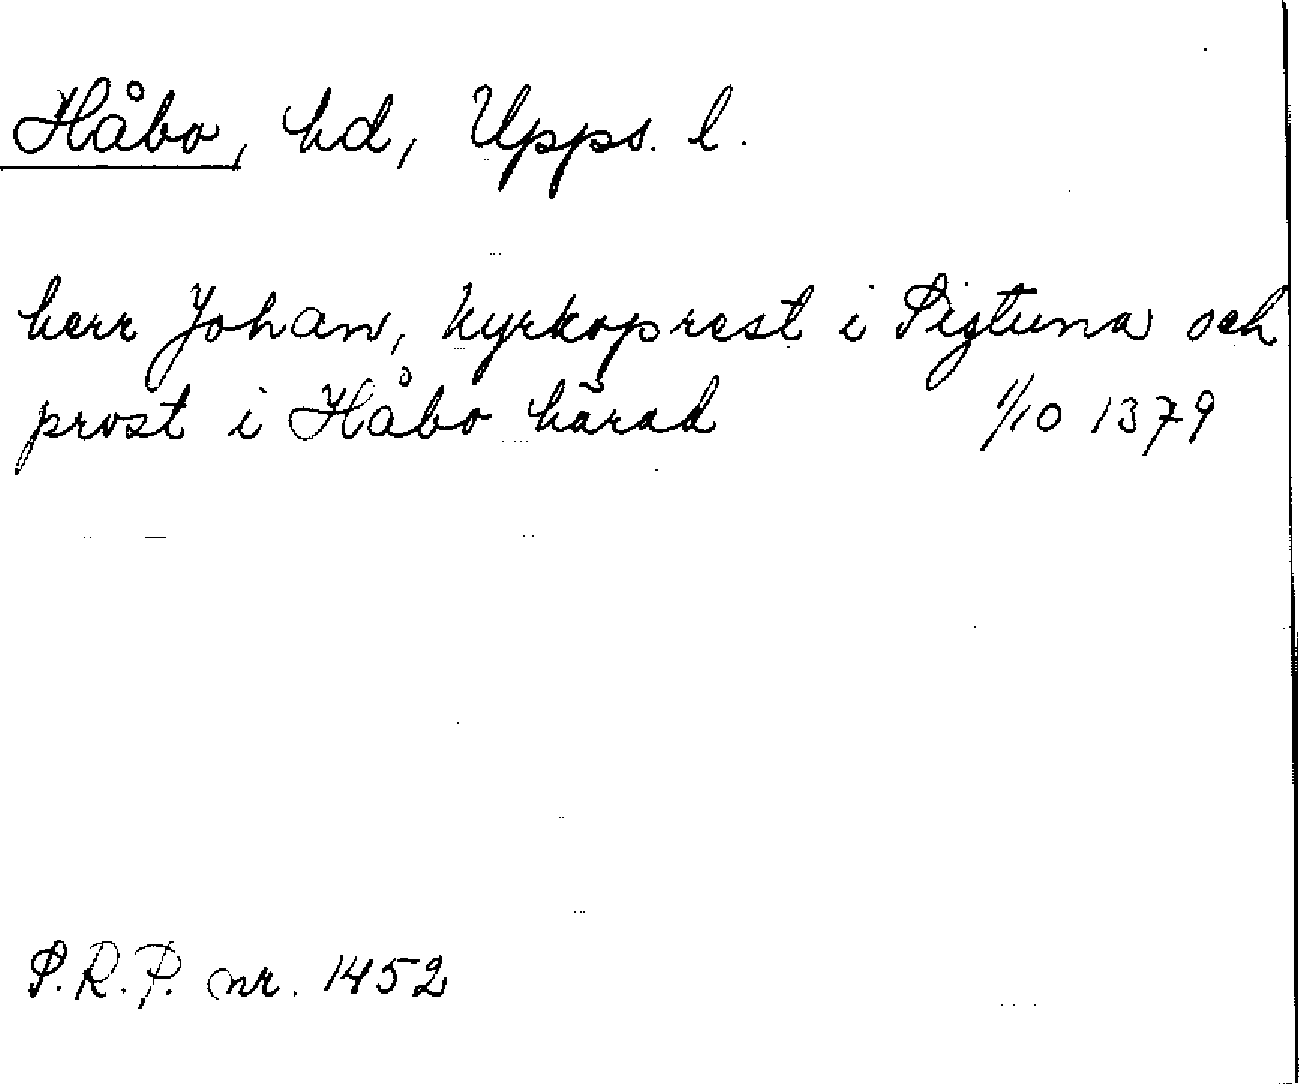 Håbo, hd, Upps. l.
herr Johan, kyrkoprest i Sigtuna och
prost i Håbo härad 1/10 1379
S.R.P. nr. 1452